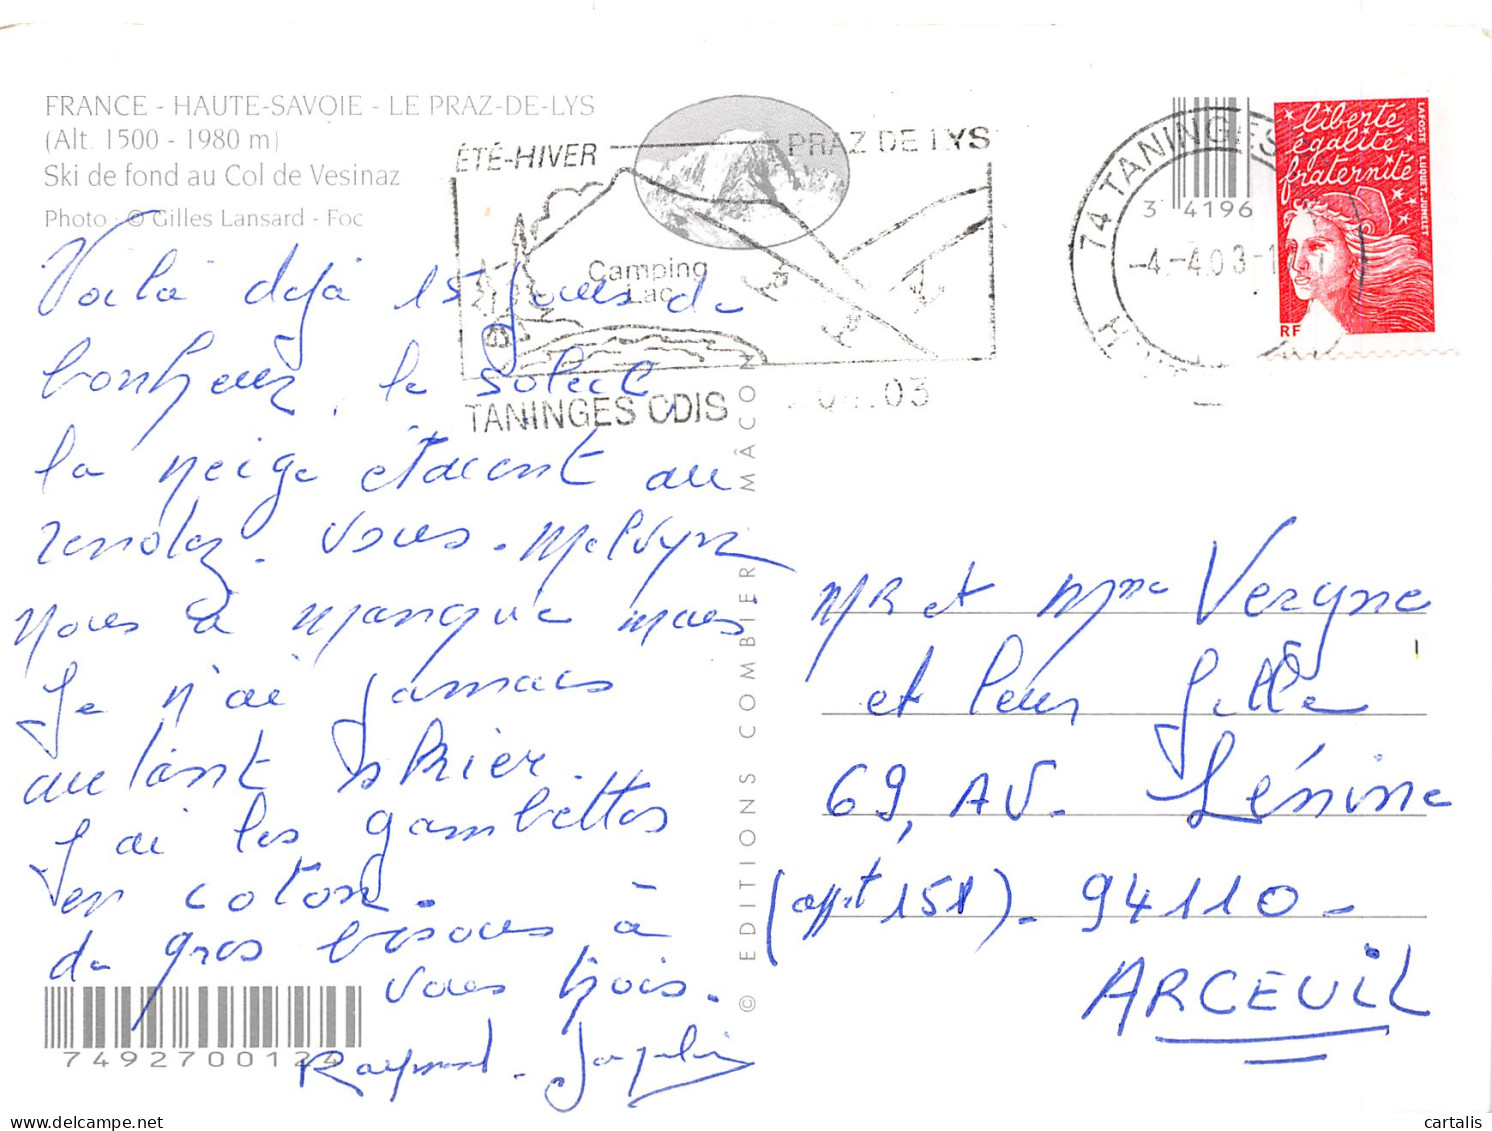 FRANCE - HAUTE-SAVOIE - LE PRAZ-DE-LYS
(Alt. 1500 - 1980 m)
Ski de fond au Col de Vesinaz
Photo : © Gilles Lansard - Foc
ÉTÉ-HIVER
PRAZ DE LYS
Camping
Lac
TANINGES CDIS
.03
74 TANINGES
-4.-4.03-1
3 4196
liberté
égalité
fraternité
LA POSTE LUQUET-JUMELET
RF
Voilà déjà 15 jours de
bonheur, le soleil,
la neige étaient au
rendez-vous. Melvyn
nous a manqué mais
Je n'ai jamais
autant skier.
J'ai les gambettes
en coton.
de gros bisous à
vous trois.
Raymond - Jacqueline
© EDITIONS COMBIER MÂCON
7492700124
MR et Mme Vergne
et leur fille
69, AV. Lénine
(appt 151). 94110 -
ARCEUIL
cartalis.com